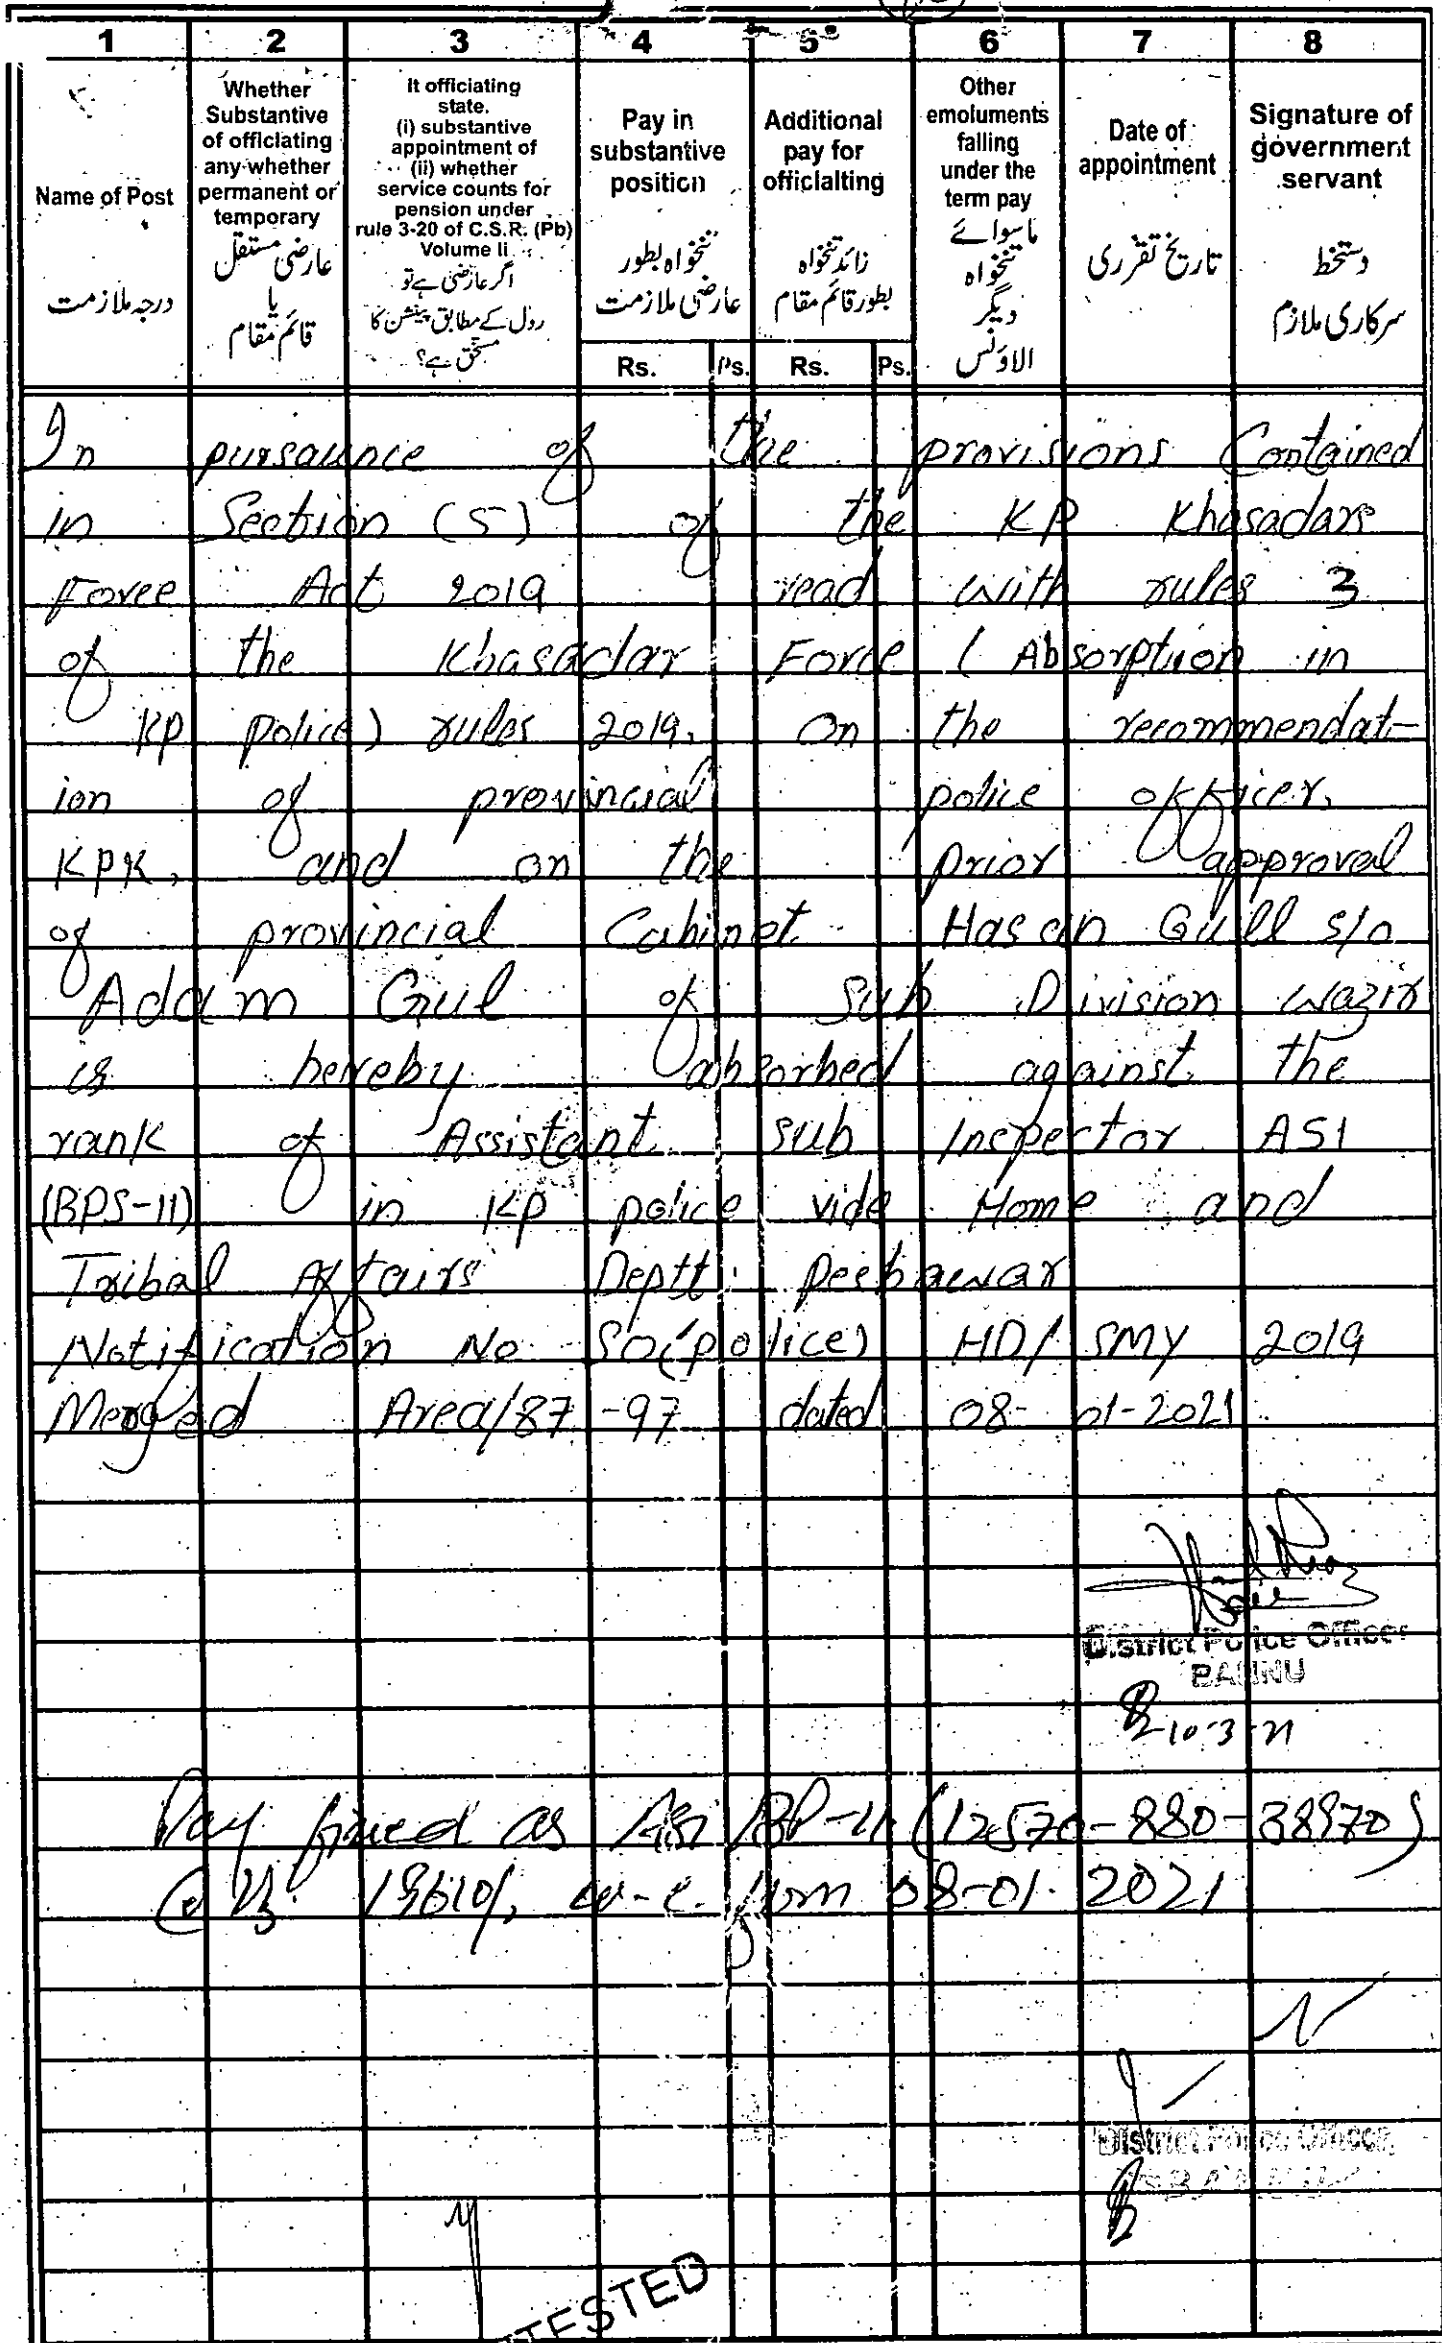 1 2 3 4 5 6 7 8
Name of Post
درجہ ملازمت
Whether
Substantive
of officlating
any whether
permanent or
temporary
عارضی مستقل
یا
قائم مقام
It officiating
state.
(i) substantive
appointment of
(ii) whether
service counts for
pension under
rule 3-20 of C.S.R. (Pb)
Volume Ii
اگر عارضی ہے تو
رول کے مطابق پینشن کا
مستحق ہے؟
Pay in
substantive
position
تنخواہ بطور
عارضی ملازمت
Rs. Ps.
Additional
pay for
officlalting
زائد تنخواہ
بطور قائم مقام
Rs. Ps.
Other
emoluments
falling
under the
term pay
ماسوائے
تنخواہ
دیگر
الاؤنس
Date of
appointment
تاریخ تقرری
Signature of
government
servant
دستخط
سرکاری ملازم
In pursaunce of the provisions Contained
in Section (5) of the KP Khasadars
Force Act 2019 read with rules 3
of the Khasadar Force (Absorption in
KP police) rules 2019, on the recommendat-
ion of provincial police officer,
KPK, and on the prior approval
of provincial Cabinet. Hasan Gull S/o
Adam Gul of Sub Division Wazir
is hereby absorbed against the
rank of Assistant sub Inspector ASI
(BPS-11) in KP police vide Home and
Tribal Affairs Deptt: Peshawar
Notification No SO(police) HD/ SMY 2019
Merged Area/87-97 dated 08-01-2021
District Police Officer
BANNU
10-3-21
Pay fixed as ASI BP-11 (12570-880-38970)
@ Rs 19610/, w-e. from 08-01-2021
District Police Officer
BANNU
TESTED